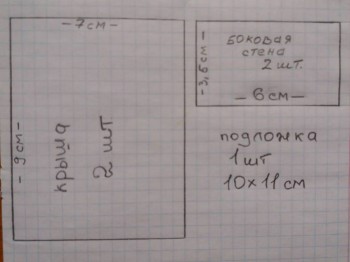 -7см-
-9см-
крыша
2 шт
-3,5см-
БОКОВАЯ
стена
2 шт.
-6см-
подложка
1 шт
10×11см